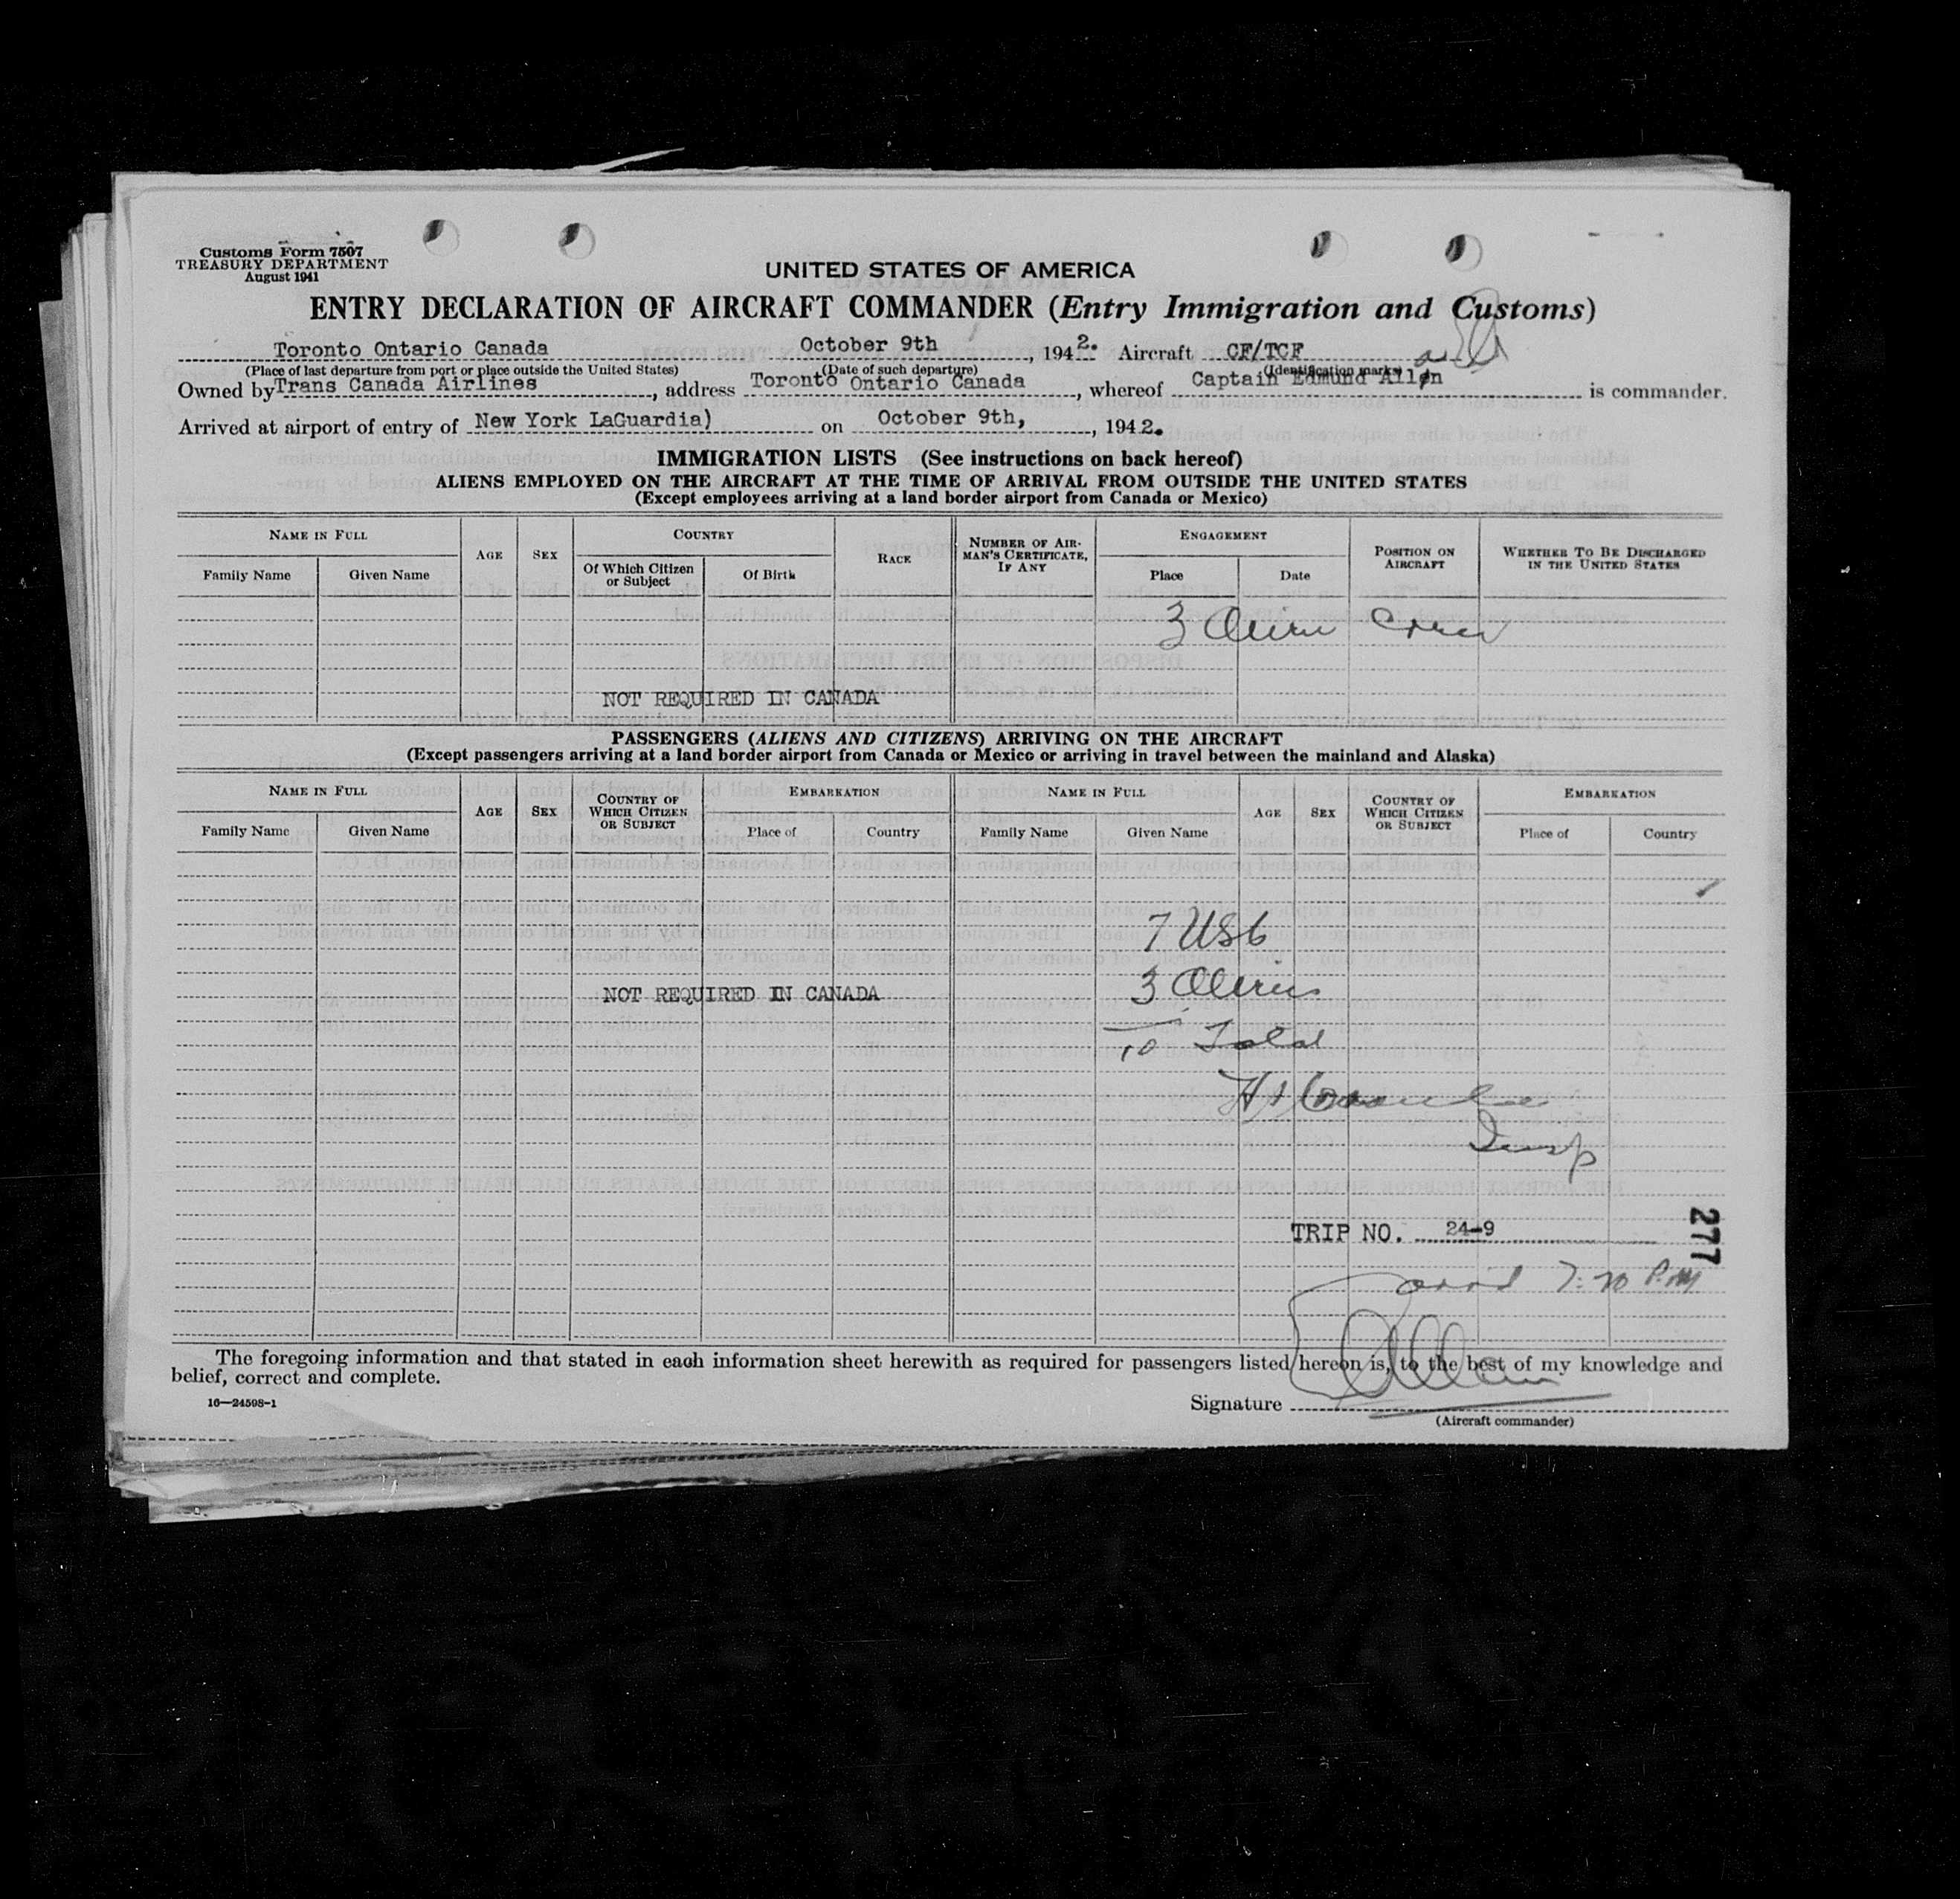 Customs Form 7507
TREASURY DEPARTMENT
August 1941
UNITED STATES OF AMERICA
ENTRY DECLARATION OF AIRCRAFT COMMANDER (Entry Immigration and Customs)
Toronto Ontario Canada October 9th, 1942. Aircraft CF/TCF
(Place of last departure from port or place outside the United States) (Date of such departure) (Identification marks)
Owned by Trans Canada Airlines, address Toronto Ontario Canada, whereof Captain Edmund Allan is commander.
Arrived at airport of entry of New York LaGuardia) on October 9th, , 1942.
IMMIGRATION LISTS (See instructions on back hereof)
ALIENS EMPLOYED ON THE AIRCRAFT AT THE TIME OF ARRIVAL FROM OUTSIDE THE UNITED STATES
(Except employees arriving at a land border airport from Canada or Mexico)
NAME IN FULL AGE SEX COUNTRY RACE NUMBER OF AIRMAN'S CERTIFICATE, IF ANY ENGAGEMENT POSITION ON AIRCRAFT WHETHER TO BE DISCHARGED IN THE UNITED STATES
Family Name Given Name Of Which Citizen or Subject Of Birth Place Date
3 Alien Crew
NOT REQUIRED IN CANADA
PASSENGERS (ALIENS AND CITIZENS) ARRIVING ON THE AIRCRAFT
(Except passengers arriving at a land border airport from Canada or Mexico or arriving in travel between the mainland and Alaska)
NAME IN FULL AGE SEX COUNTRY OF WHICH CITIZEN OR SUBJECT EMBARKATION NAME IN FULL AGE SEX COUNTRY OF WHICH CITIZEN OR SUBJECT EMBARKATION
Family Name Given Name Place of Country Family Name Given Name Place of Country
7 USC
3 Aliens
NOT REQUIRED IN CANADA
10 Total
Insp
TRIP NO. 24-9
277
arrd 7:20 P.M.
The foregoing information and that stated in each information sheet herewith as required for passengers listed hereon is, to the best of my knowledge and
belief, correct and complete.
16—24598-1
Signature EAllan
(Aircraft commander)